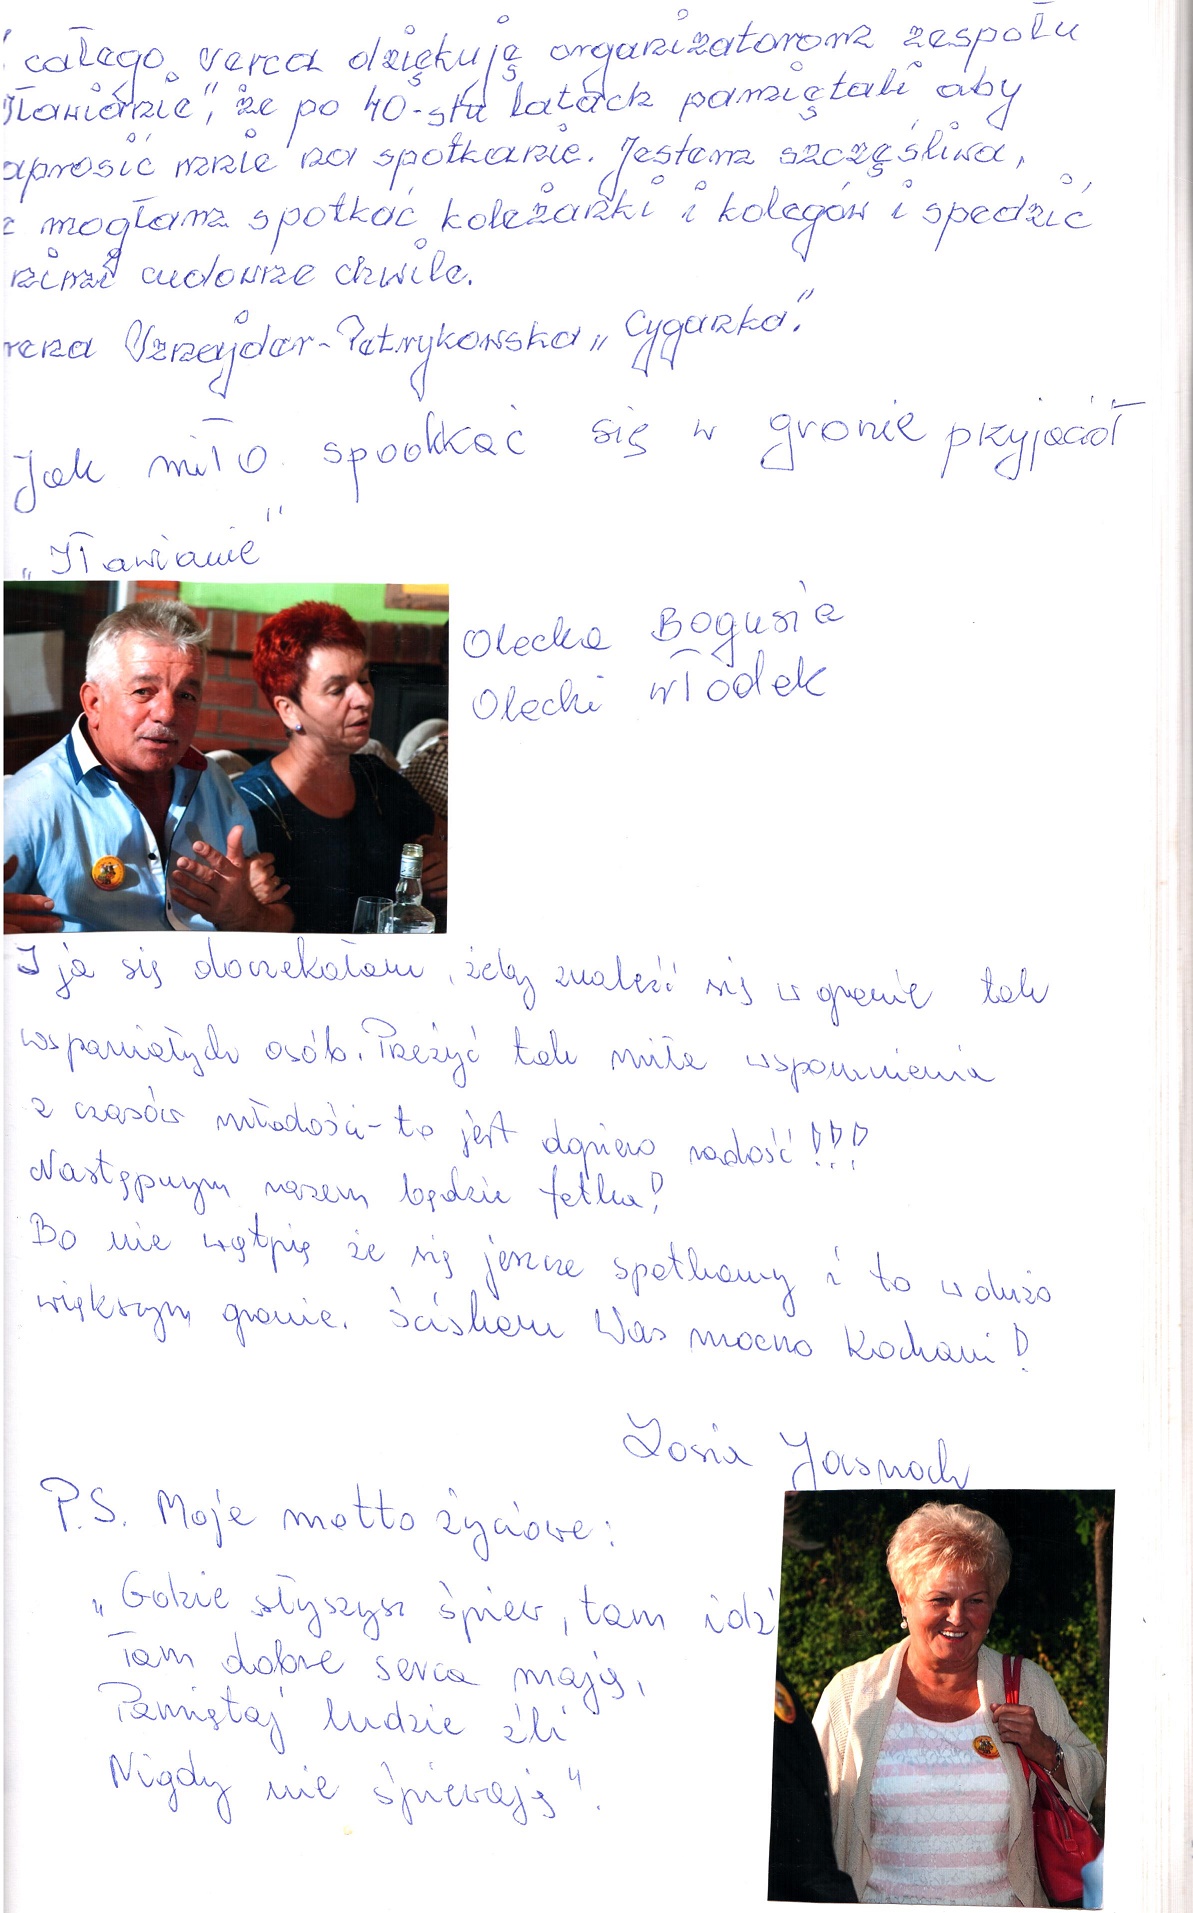 całego serca dziękuję organizatorom zespołu
Iławianie", że po 40-stu latach pamiętali aby
aprosić mnie na spotkanie. Jestem szczęśliwa,
mogłam spotkać koleżanki i kolegów i spędzić
nimi cudowne chwile.
rena Uznajder-Petrykowska „Cyganka".
Jak miło spootkać się w gronie przyjaciół
„Iławianie"
Olecka Bogusia
Olecki Włodek
I ja się doczekałam, żeby znaleźć się w gronie tak
wspaniałych osób. Przeżyć tak miłe wspomnienia
z czasów młodości - to jest dopiero radość!!!
Następnym razem będzie fetka!
Bo nie wątpię że się jeszcze spotkamy i to w dużo
większym gronie. Ściskam Was mocno Kochani!
Zosia Jasnoch
P.S. Moje motto życiowe:
„Gdzie słyszysz śpiew, tam idź
Tam dobre serca mają,
Pamiętaj ludzie źli
Nigdy nie śpiewają".